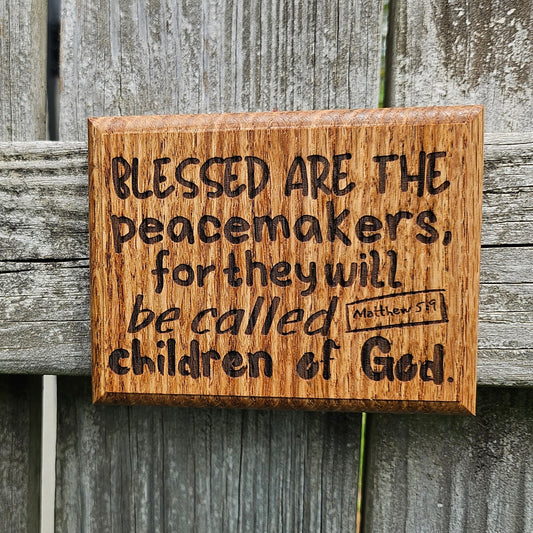 BLESSED ARE THE
peacemakers,
for they will
be called
Matthew 5:9
children of God.